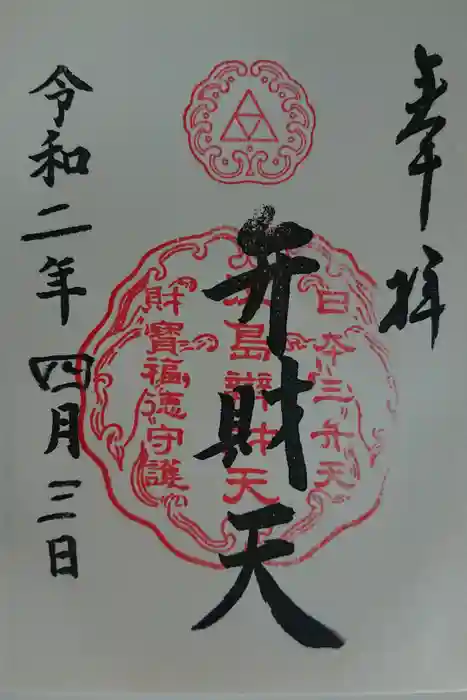 奉拝
日本三弁天
島辨財天
財寶福徳守護
弁財天
令和二年四月三日